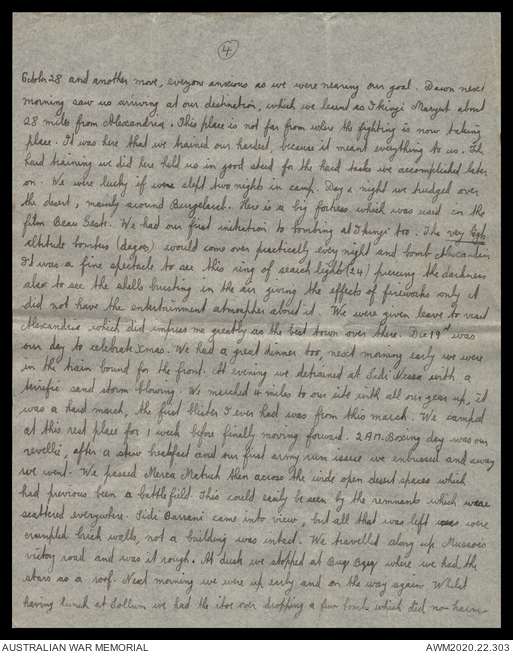 4
October 28 and another move, everyone anxious as we were nearing our goal. Dawn next
morning saw us arriving at our destination, which we learnt as Ikingi Maryut about
28 miles from Alexandria. This place is not far from where the fighting is now taking
place. It was here that we trained our hardest, because it meant everything to us. The
hard training we did here held us in good stead for the hard tasks we accomplished later
on. We were lucky if we slept two nights in camp. Day & night we trudged over
the desert, mainly around Burgelarab. Here is a big fortress which was used in the
film Beau Geste. We had our first initiation to bombing at Ikingi too. The very high
altitude bombers (dagos) would come over practically every night and bomb Alexandria
It was a fine spectacle to see this ring of search lights (24) piercing the darkness
also to see the shells bursting in the air giving the effects of fireworks only it
did not have the entertainment atmospher about it. We were given leave to visit
Alexandria which did impress me greatly as the best town over there. Dec 19th was
our day to celebrate Xmas. We had a great dinner too, next morning early we were
in the train bound for the front. At evening we detrained at Sidi Nessa with a
terrific sand storm blowing. We marched 4 miles to our site with all our gear up, it
was a hard march, the first blister I ever had was from this march. We camped
at this rest place for 1 week before finally moving forward. 2 AM. Boxing day was our
revellie, after a stew breakfast and our first army rum issue we embussed and away
we went. We passed Merca Matruh then across the wide open desert spaces which
had previous been a battlefield. This could easily be seen by the remnants which were
scattered everywhere. Sidi Barrani came into view, but all that was left were
crumpled brick walls, not a building was intact. We travelled along up Mussos
victory road and was it rough. At dusk we stopped at Bug Bug where we had the
stars as a roof. Next morning we were up early and on the way again Whilst
having lunch at Sollum we had the itos over dropping a few bombs which did no harm
AUSTRALIAN WAR MEMORIAL
AWM2020.22.303